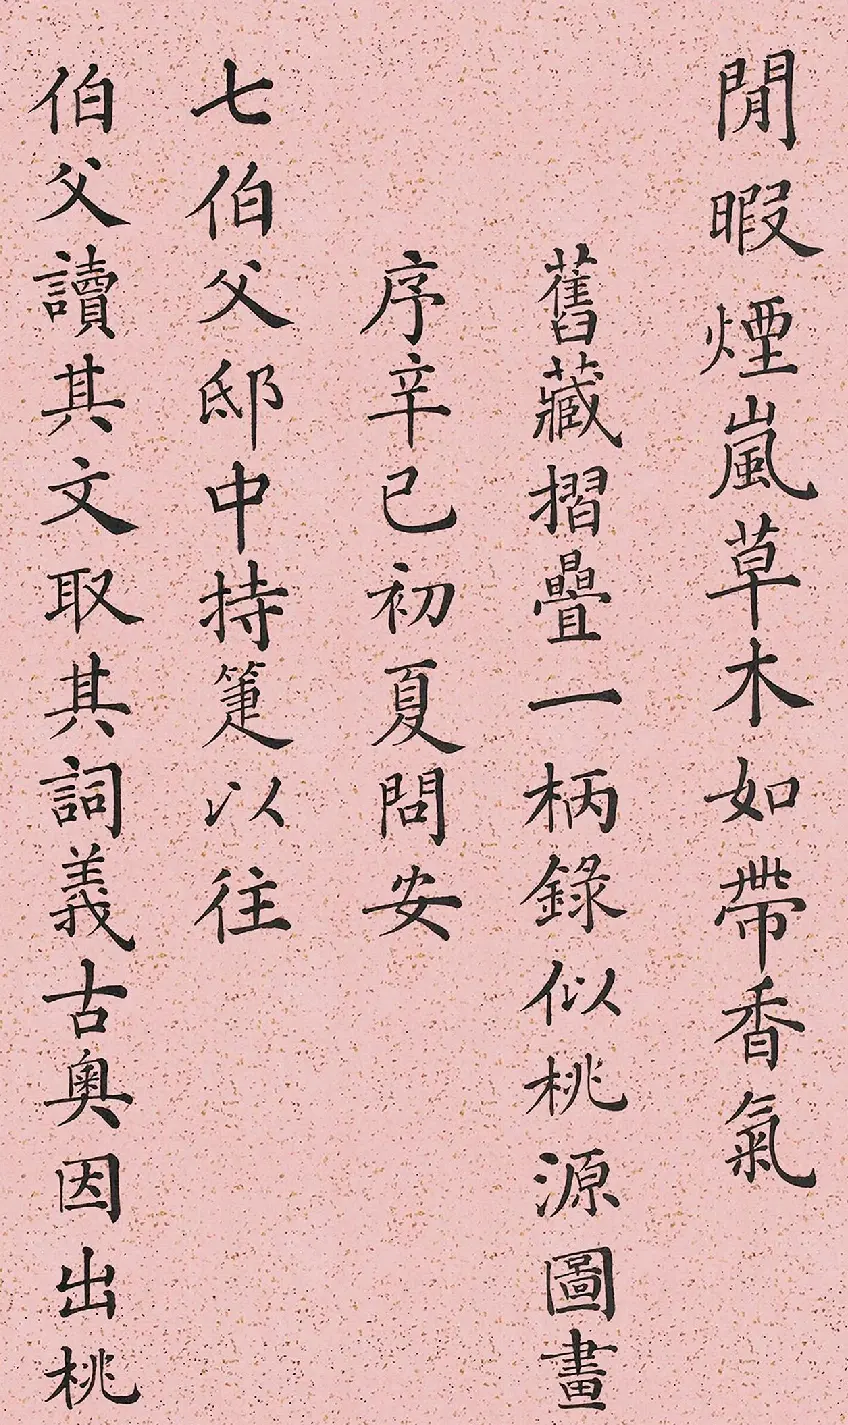 閒暇煙嵐草木如帶香氣
舊藏摺疊一柄錄似桃源圖畫
序辛巳初夏問安
七伯父邸中持箑以往
伯父讀其文取其詞義古奧因出桃